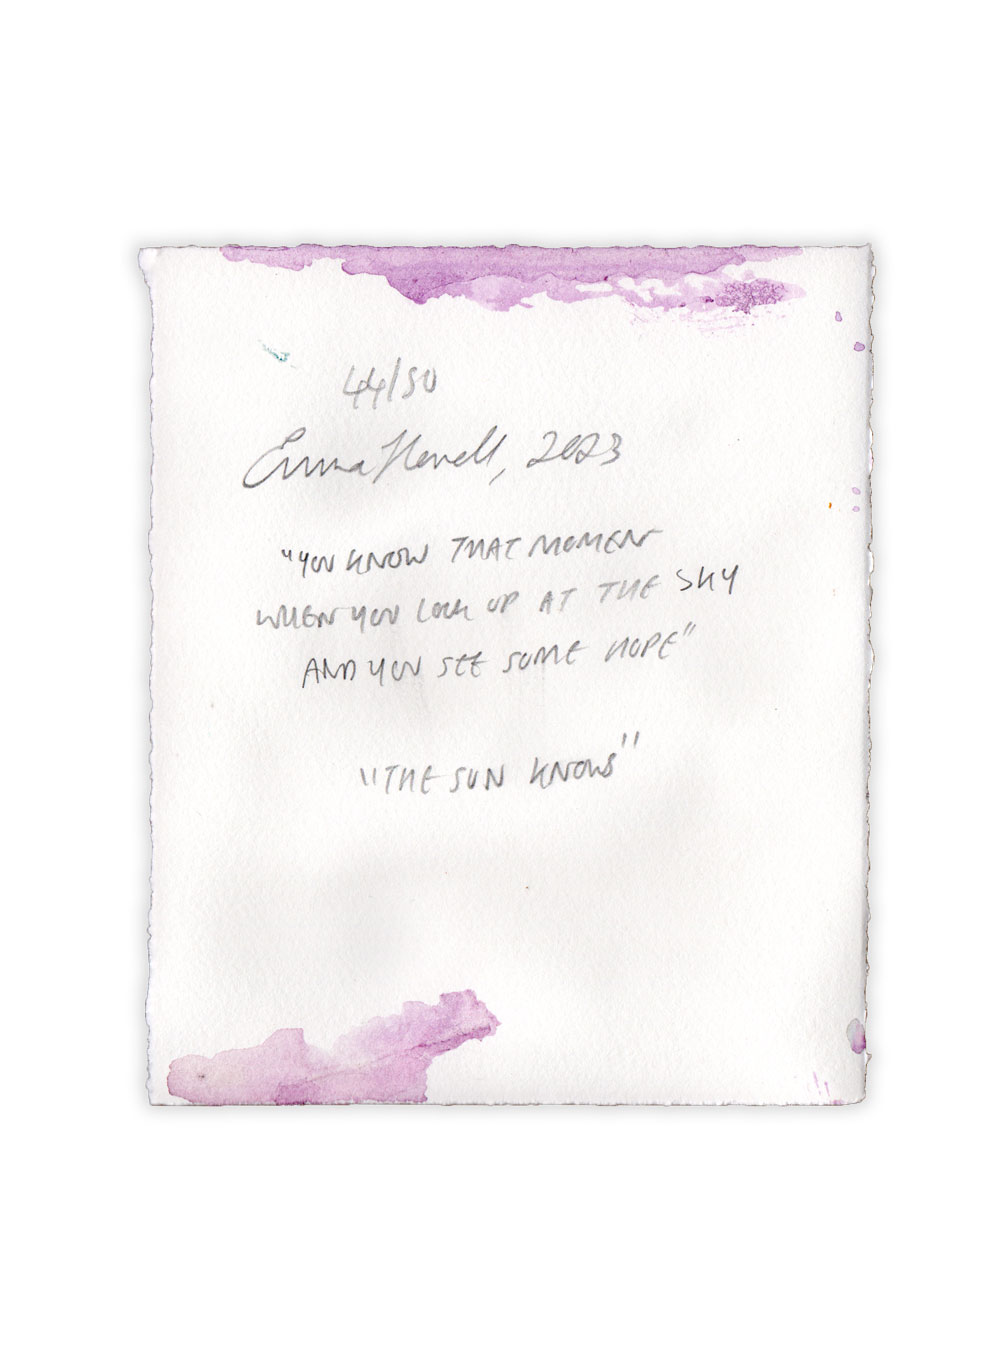 44/50
Emma Howell, 2023
"YOU KNOW THAT MOMENT
WHEN YOU LOOK UP AT THE SKY
AND YOU SEE SOME HOPE"
"THE SUN KNOWS"